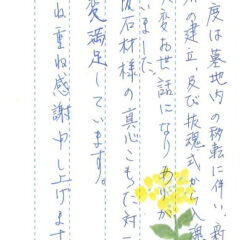 度は墓地内の移転に伴い、新
の建立及び抜魂式から入魂
大変お世話になりありが
いました。
坂石材様の真心こもだ対
変満足しています。
ね重ね感謝申し上げます